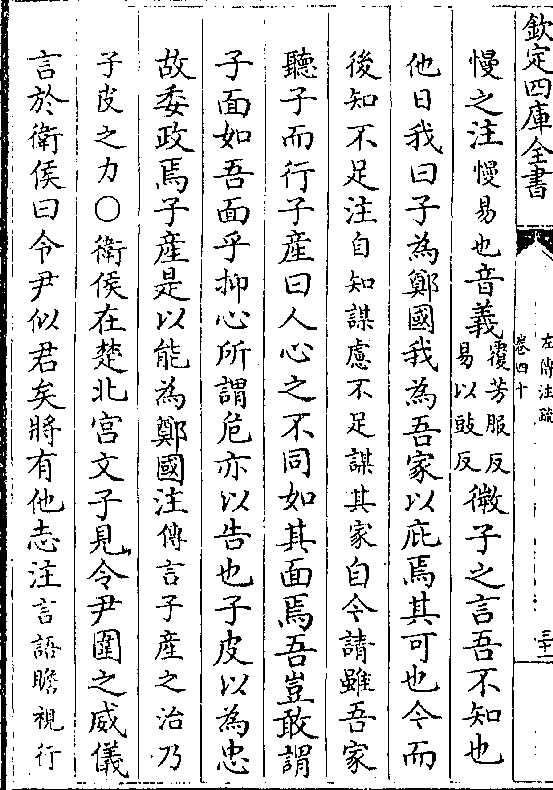 欽定四庫全書
左傳注疏
卷四十
三十
慢之注慢易也音義覆芳服反易以豉反微子之言吾不知也
他日我曰子為鄭國我為吾家以庇焉其可也今而
後知不足注自知謀慮不足謀其家自今請雖吾家
聽子而行子產曰人心之不同如其面焉吾豈敢謂
子面如吾面乎抑心所謂危亦以告也子皮以為忠
故委政焉子產是以能為鄭國注傳言子產之治乃
子皮之力○衛侯在楚北宮文子見令尹圍之威儀
言於衛侯曰令尹似君矣將有他志注言語瞻視行